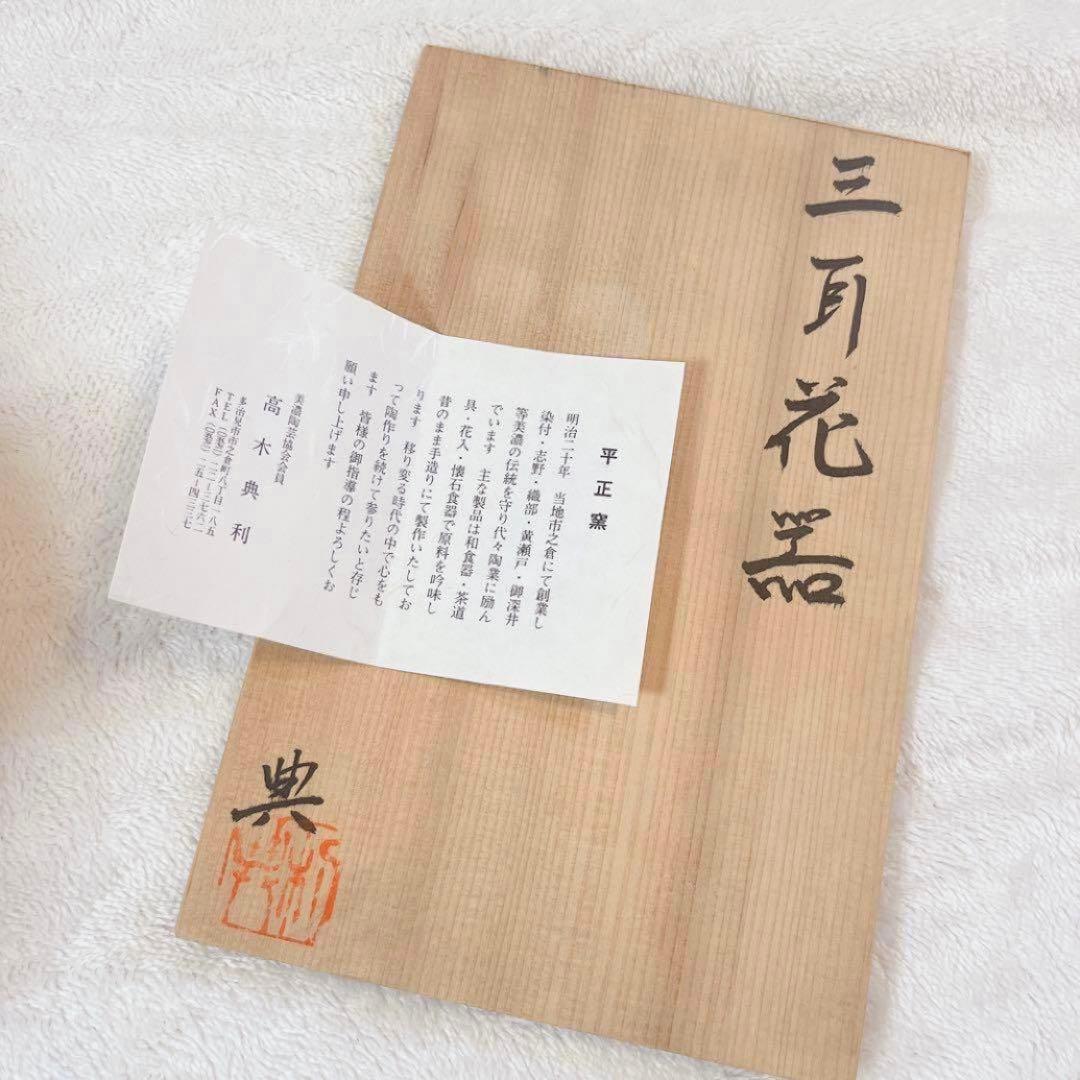 三耳花器
典
平正窯
明治二十年 当地市之倉にて創業し
染付・志野・織部・黄瀬戸・御深井
等美濃の伝統を守り代々陶業に励ん
でいます 主な製品は和食器・茶道
具・花入・懐石食器で原料を吟味し
昔のまま手造りにて製作いたしてお
ります 移り変る時代の中で心をも
って陶作りを続けて参りたいと存じ
ます 皆様の御指導の程よろしくお
願い申し上げます
美濃陶芸協会会員
高木典利
多治見市市之倉町八丁目一八五
TEL(〇五七二)二二-三七六二
FAX(〇五七二)二五-四三三七